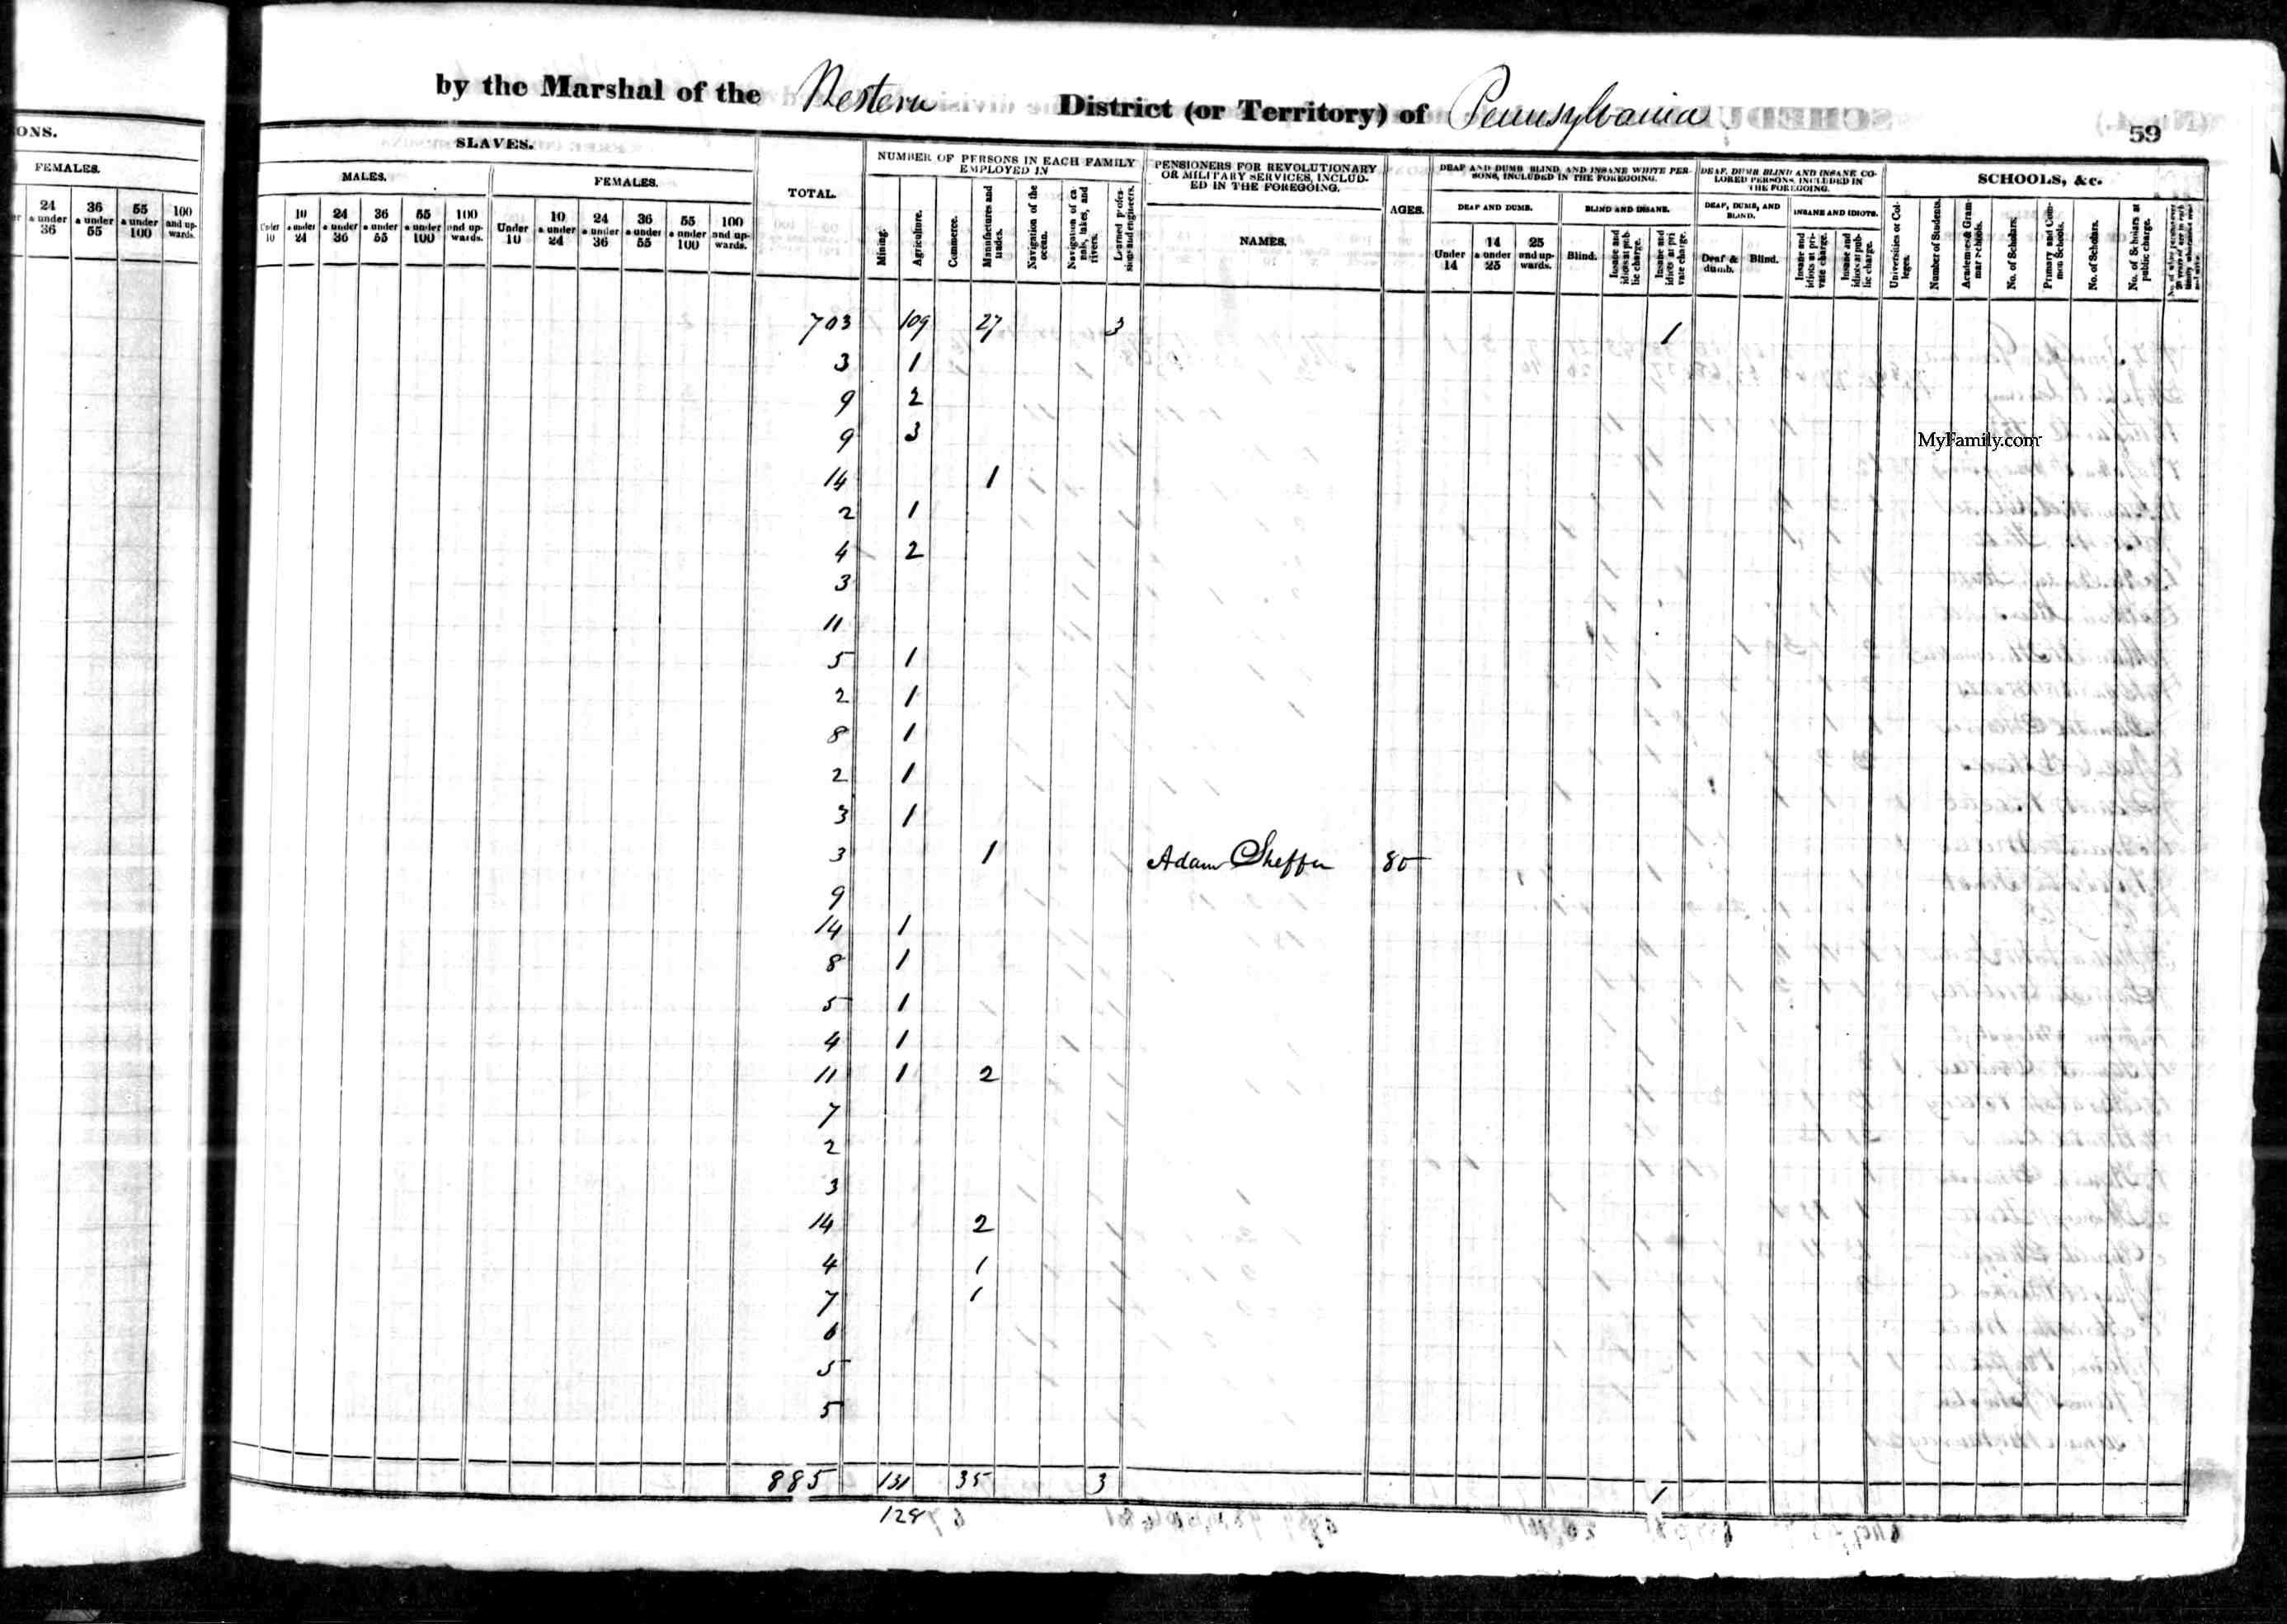 by the Marshal of the Western District (or Territory) of Pennsylvania
59
ONS.
FEMALES.
24 & under 36
36 & under 55
55 & under 100
100 and upwards.
SLAVES.
MALES.
FEMALES.
Under 10
10 & under 24
24 & under 36
36 & under 55
55 & under 100
100 and upwards.
Under 10
10 & under 24
24 & under 36
36 & under 55
55 & under 100
100 and upwards.
TOTAL.
NUMBER OF PERSONS IN EACH FAMILY EMPLOYED IN
Mining.
Agriculture.
Commerce.
Manufactures and trades.
Navigation of the ocean.
Navigation of canals, lakes, and rivers.
Learned professions and engineers.
PENSIONERS FOR REVOLUTIONARY OR MILITARY SERVICES, INCLUDED IN THE FOREGOING.
NAMES.
AGES.
DEAF AND DUMB, BLIND, AND INSANE WHITE PERSONS, INCLUDED IN THE FOREGOING.
DEAF AND DUMB.
Under 14
14 & under 25
25 and upwards.
BLIND AND INSANE.
Blind.
Insane and idiots at public charge.
Insane and idiots at private charge.
DEAF, DUMB, BLIND AND INSANE COLORED PERSONS, INCLUDED IN THE FOREGOING.
DEAF, DUMB, AND BLIND.
Deaf & dumb.
Blind.
INSANE AND IDIOTS.
Insane and idiots at private charge.
Insane and idiots at public charge.
SCHOOLS, &c.
Universities or Colleges.
Number of Students.
Academies & Grammar Schools.
No. of Scholars.
Primary and Common Schools.
No. of Scholars.
No. of Scholars at public charge.
703 109 27 3 1
3 1
9 2
9 3
MyFamily.com
14 1
2 1
4 2
3
11
5 1
2 1
8 1
2 1
3 1
3 1 Adam Sheffer 85
9
14 1
8 1
5 1
4 1
11 1 2
7
2
3
14 2
4 1
7 1
6
5
5
885 131 35 3 1